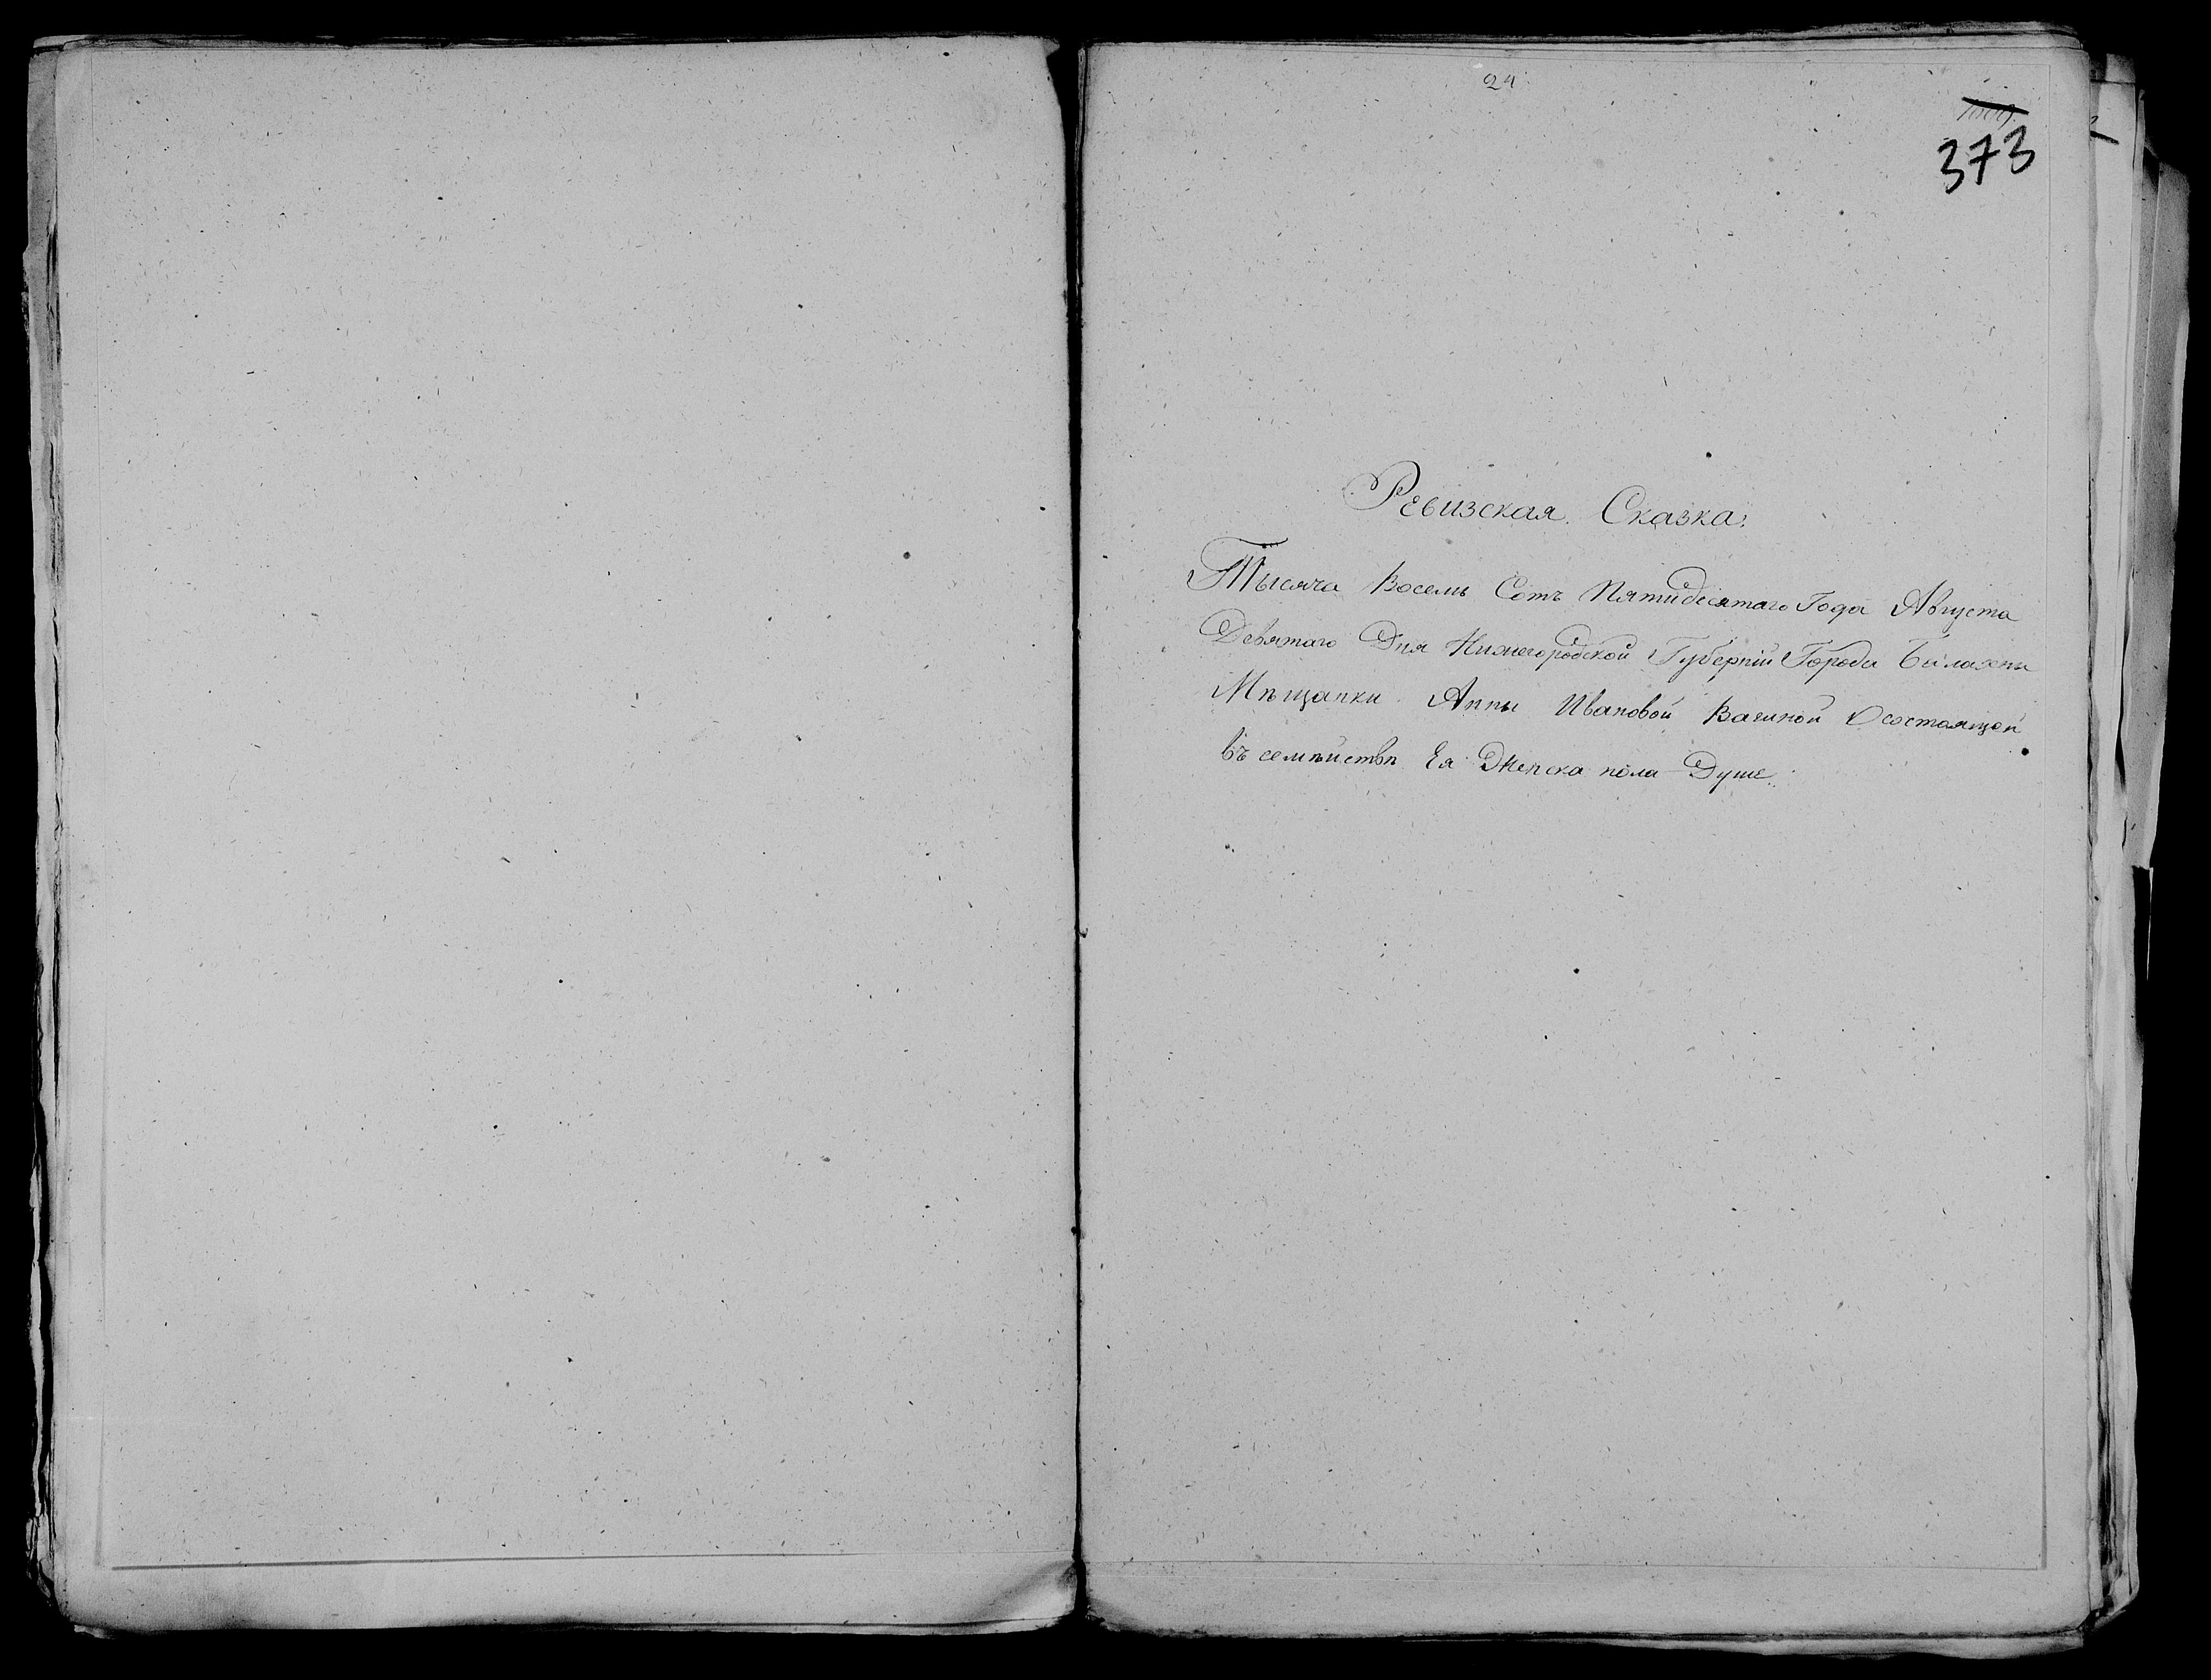 24
373
Ревизская Сказка.
Тысяча Восемь Сотъ Пятидесятаго Года Августа
Девятаго Дня Нижегородской Губерніи Города Балахны
Мѣщанки Анны Ивановой Вагиной О состоящей
въ семѣйствѣ Ея Женска пола Душе.